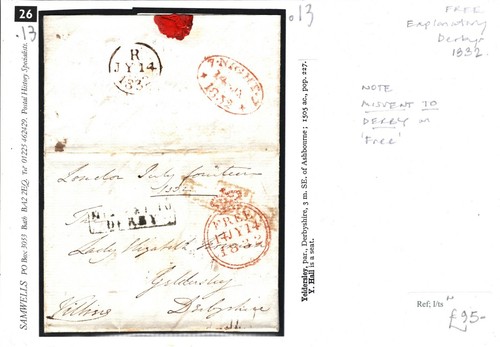 26
.13
SAMWELLS PO Box 3053 Bath BA2 2EQ. Tel 01225 462429. Postal History Specialists.
R
JY 14
1832
7.NIGHT.7
1832
London July fourteen
1832
MISSENT TO
DERBY
FREE
14 JY 14
1832
Lady Elizabeth
Yeldersley
Derbyshire
Yeldersley, par., Derbyshire, 3 m. SE. of Ashbourne; 1505 ac., pop. 227.
Y. Hall is a seat.
.13
FREE
Explanatory
Derby
1832
NOTE
MISSENT TO
DERBY
'Free'
Ref; I/ts
£95-